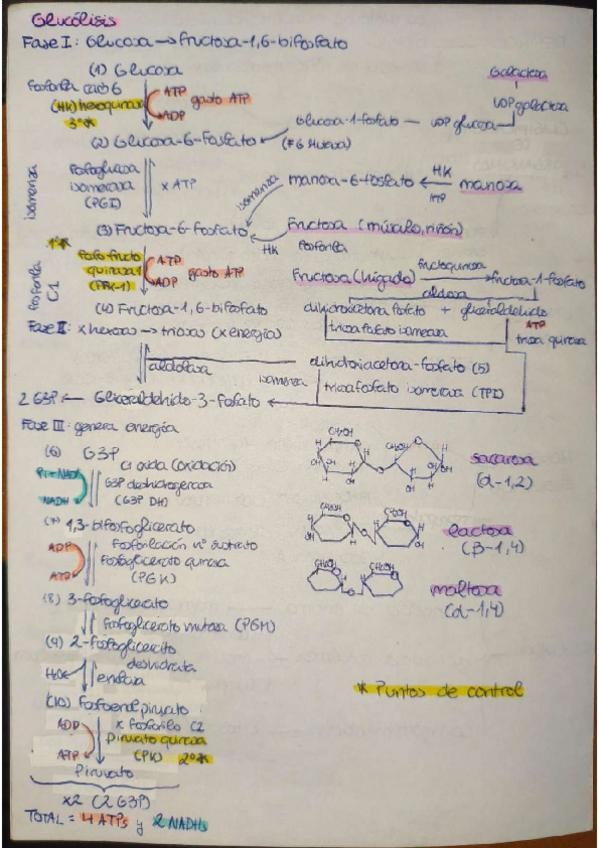 Glucólisis
Fase I: Glucosa → Fructosa-1,6-bifosfato
(1) Glucosa
Fosforila carb 6
(HK) hexoquinasa
3º*
ATP
ADP
gasto ATP
(2) Glucosa-6-Fosfato
Glucosa-1-fosfato
UDP glucosa
UDP galactosa
Galactosa
(FG Mutasa)
isomeriza
Fosfoglucosa
isomerasa
(PGI)
x ATP
manosa-6-fosfato
HK
ATP
manosa
isomeriza
(3) Fructosa-6-Fosfato
HK
Fructosa (músculo, riñón)
fosforila
1º*
Fosfofructo
quinasa 1
(PFK-1)
ATP
ADP
gasto ATP
fosforila
C1
Fructosa (hígado)
fructoquinasa
fructosa-1-fosfato
aldosa
(4) Fructosa-1,6-bifosfato
dihidroxicetona fosfato + gliceraldehido
triosa fosfato isomerasa
ATP
triosa quinasa
Fase II: x hexosa → triosa (x energía)
aldolasa
dihidroxiacetona-fosfato (5)
isomeriza
triosafosfato isomerasa (TPI)
2 G3P ← Gliceraldehido-3-fosfato
Fase III: genera energía
(6) G3P
C1 oxida (oxidación)
Pi+NAD+
NADH
G3P deshidrogenasa
(G3P DH)
(7) 1,3-bifosfoglicerato
ADP
ATP
Fosforilación nº sustrato
Fosfoglicerato quinasa
(PGK)
(8) 3-fosfoglicerato
fosfoglicerato mutasa (PGM)
(9) 2-fosfoglicerato
deshidrata
H2O
enolasa
(10) Fosfoenolpiruvato
ADP
ATP
x fosforilo C2
Piruvato quinasa
(PK) 2º*
Piruvato
x2 (2 G3P)
TOTAL = 4 ATPs y 2 NADHs
sacarosa
(α-1,2)
lactosa
(β-1,4)
maltosa
(α-1,4)
* Puntos de control